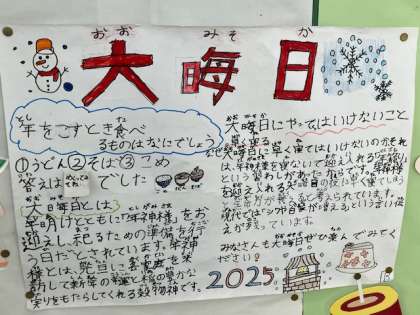 おお みそ か
大晦日
年をこすとき食べ
るものはなにでしょう
①うどん②そば③こめ
答えは
でした
大晦日とは
年明けとともに「年神様」をお
迎えし、祀るための準備を行
う日だとされています。年神
様とは
りをもたらしてくれる穀物神です。
大晦日にやってはいけないこと
早く寝る
なぜ大晦日に早く寝てはいけないのかそれ
は、年神様を寝ないで迎え入れる
という習わしがあった
を迎える大晦日の夜に早く寝てしま
と考えられています。
現代では
えが残っています。
みなさんも大晦日ぜひ楽んでみてく
ださい!
2025